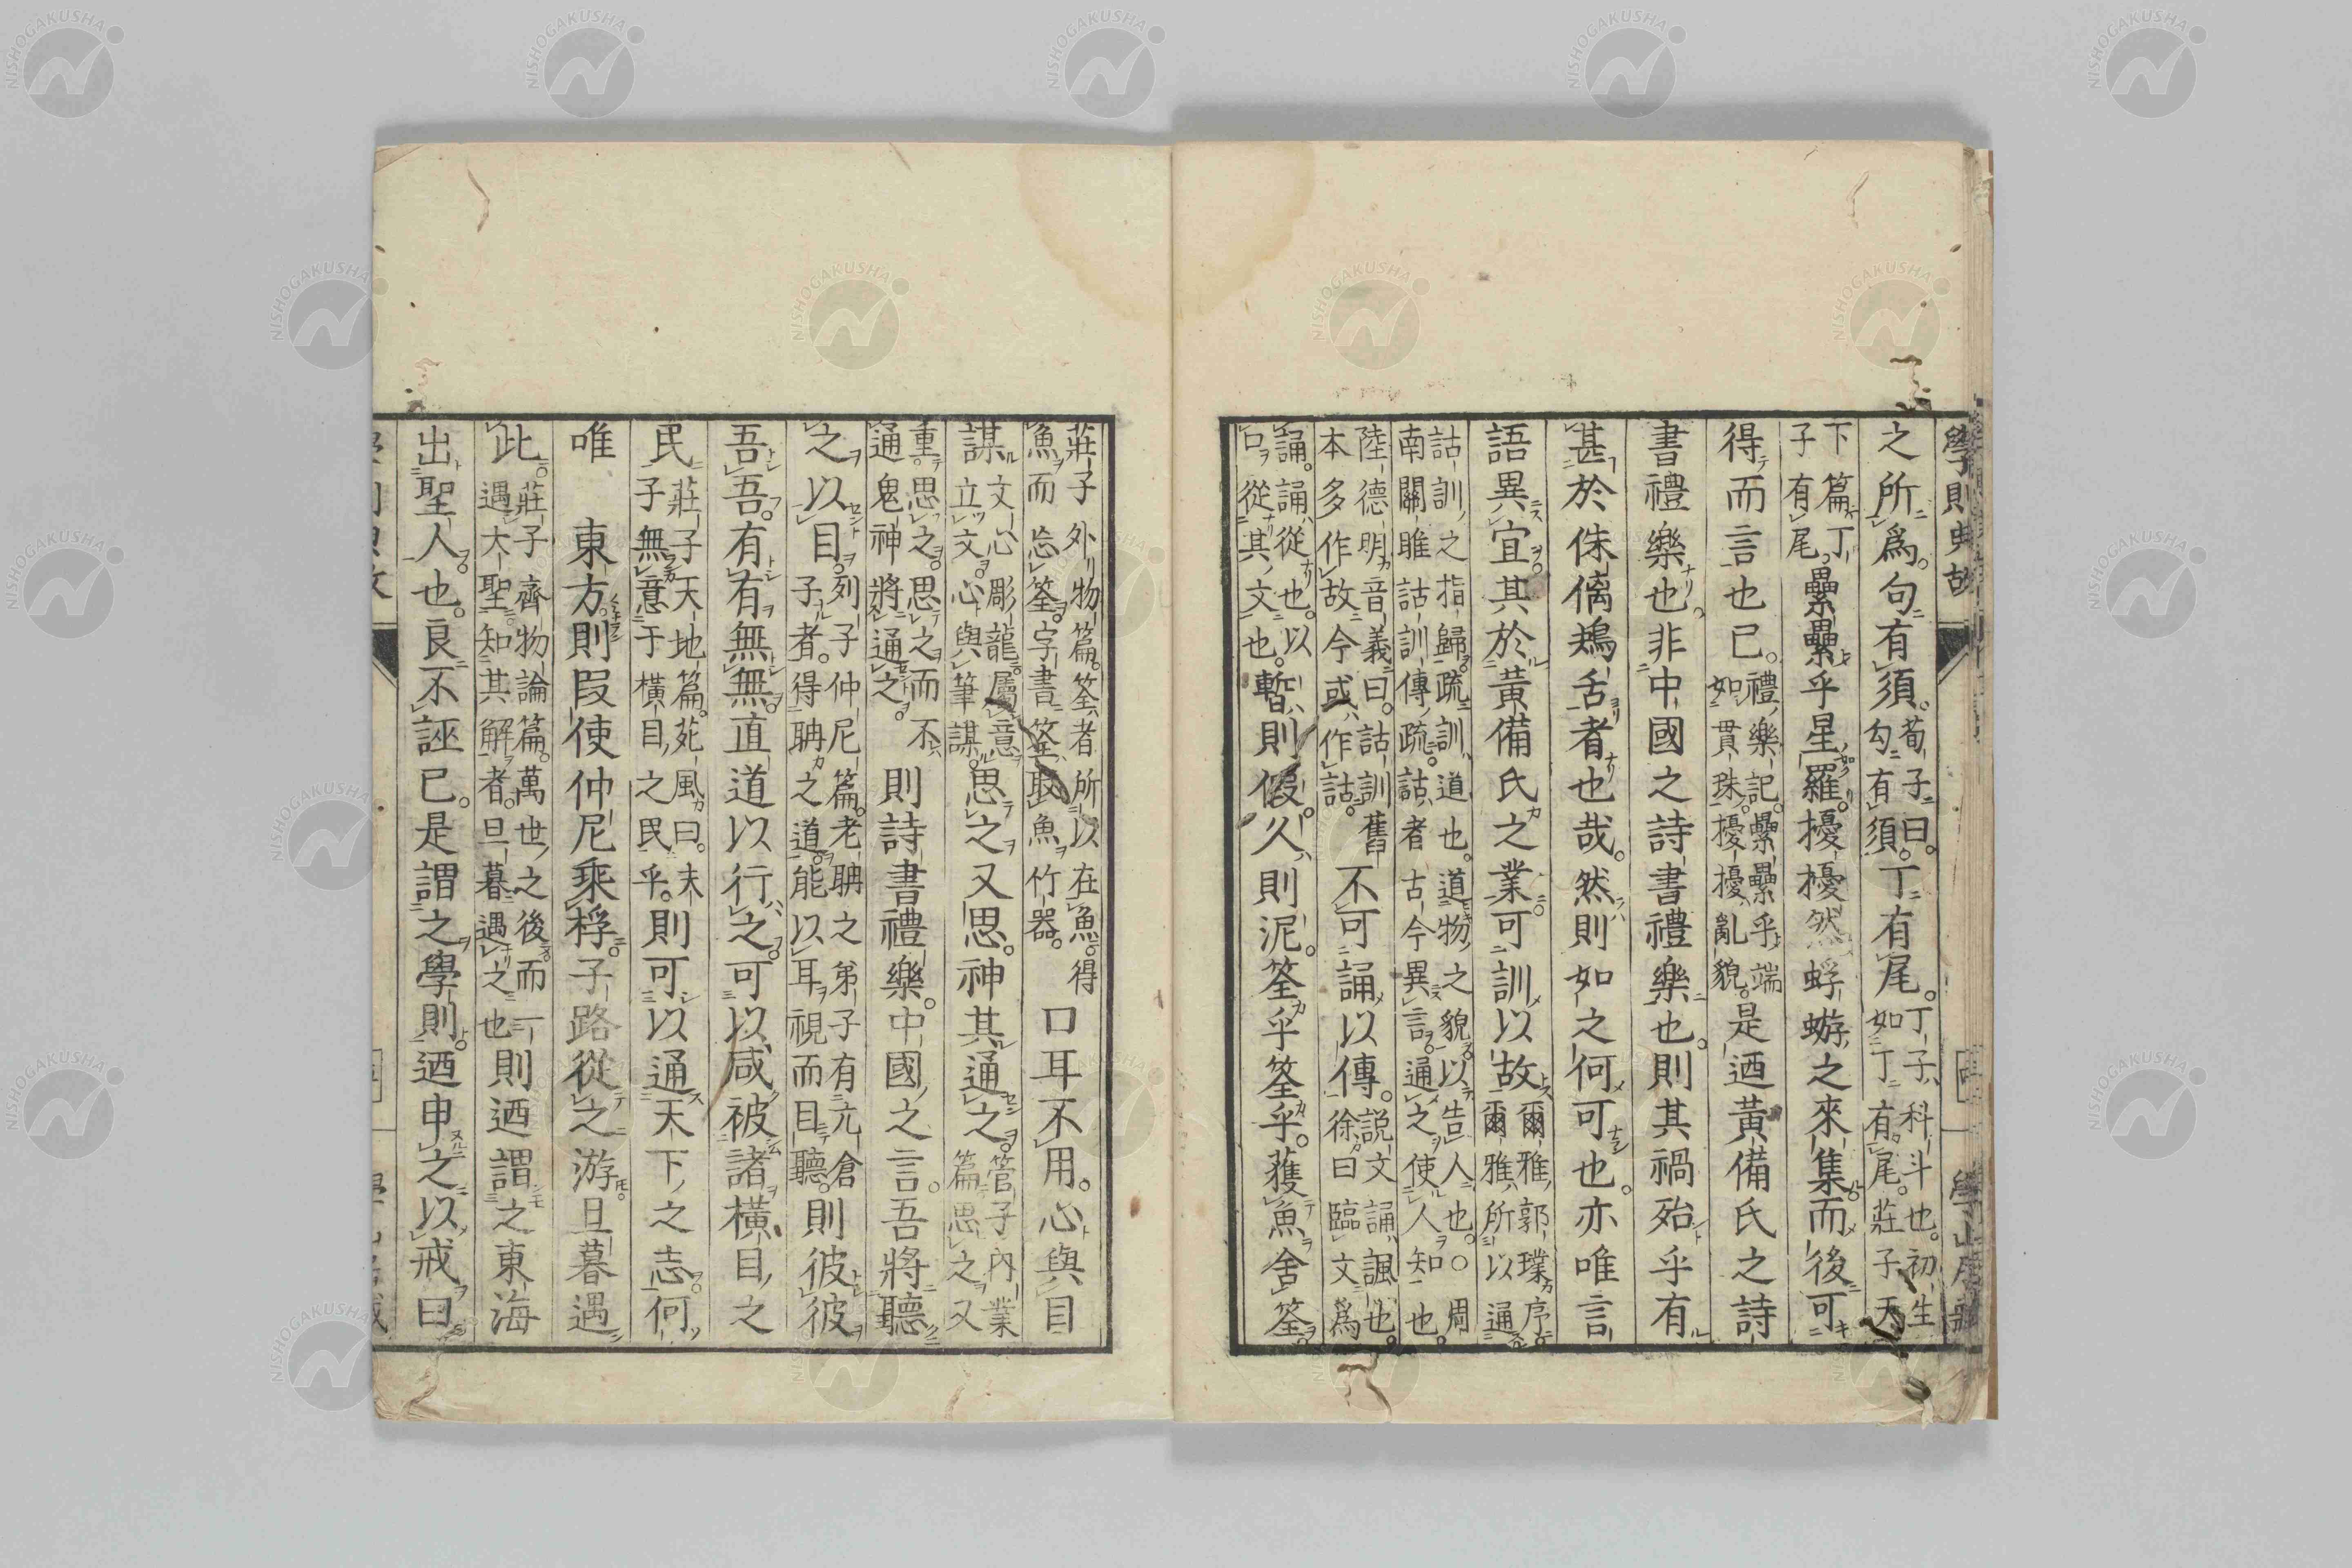 學則典故
之所爲句有須荀子曰勾有須丁有尾丁子科斗也初生如丁有尾莊子天
下篇丁子有尾纍纍乎星羅擾擾然蜉蝣之來集而後可
得而言也已禮樂記纍纍乎端如貫珠擾擾亂貌是迺黃備氏之詩
書禮樂也非中國之詩書禮樂也則其禍殆乎有
甚於侏𠌯鴂舌者也哉然則如之何可也亦唯言
語異宜其於黃備氏之業可訓以故爾雅郭璞序爾雅所以通
詁訓之指歸疏訓道也道物之貌以告人也○周南關雎詁訓傳疏詁者古今異言通之使人知也
陸德明音義曰詁訓舊本多作故今或作詁不可誦以傳說文誦諷也徐曰臨文爲
誦誦從也以口從其文也暫則假久則泥筌乎筌乎獲魚舍筌
莊子外物篇筌者所以在魚得魚而忘筌字書筌取魚竹器口耳不用心與目
謀文心彫龍屬意立文心與筆謀思之又思神其通之管子內業篇思之又
重思之思之而不通鬼神將通之則詩書禮樂中國之言吾將聽
之以目列子仲尼篇老聃之弟子有亢倉子者得聃之道能以耳視而目聽則彼彼
吾吾有有無無直道以行之可以咸被諸橫目之
民莊子天地篇苑風曰夫子無意于橫目之民乎則可以通天下之志何
唯東方則叚使仲尼乘桴子路從之游旦暮遇
此莊子齊物論篇萬世之後而一遇大聖知其解者旦暮遇之也則迺謂之東海
出聖人也良不誣已是謂之學則迺申之以戒曰